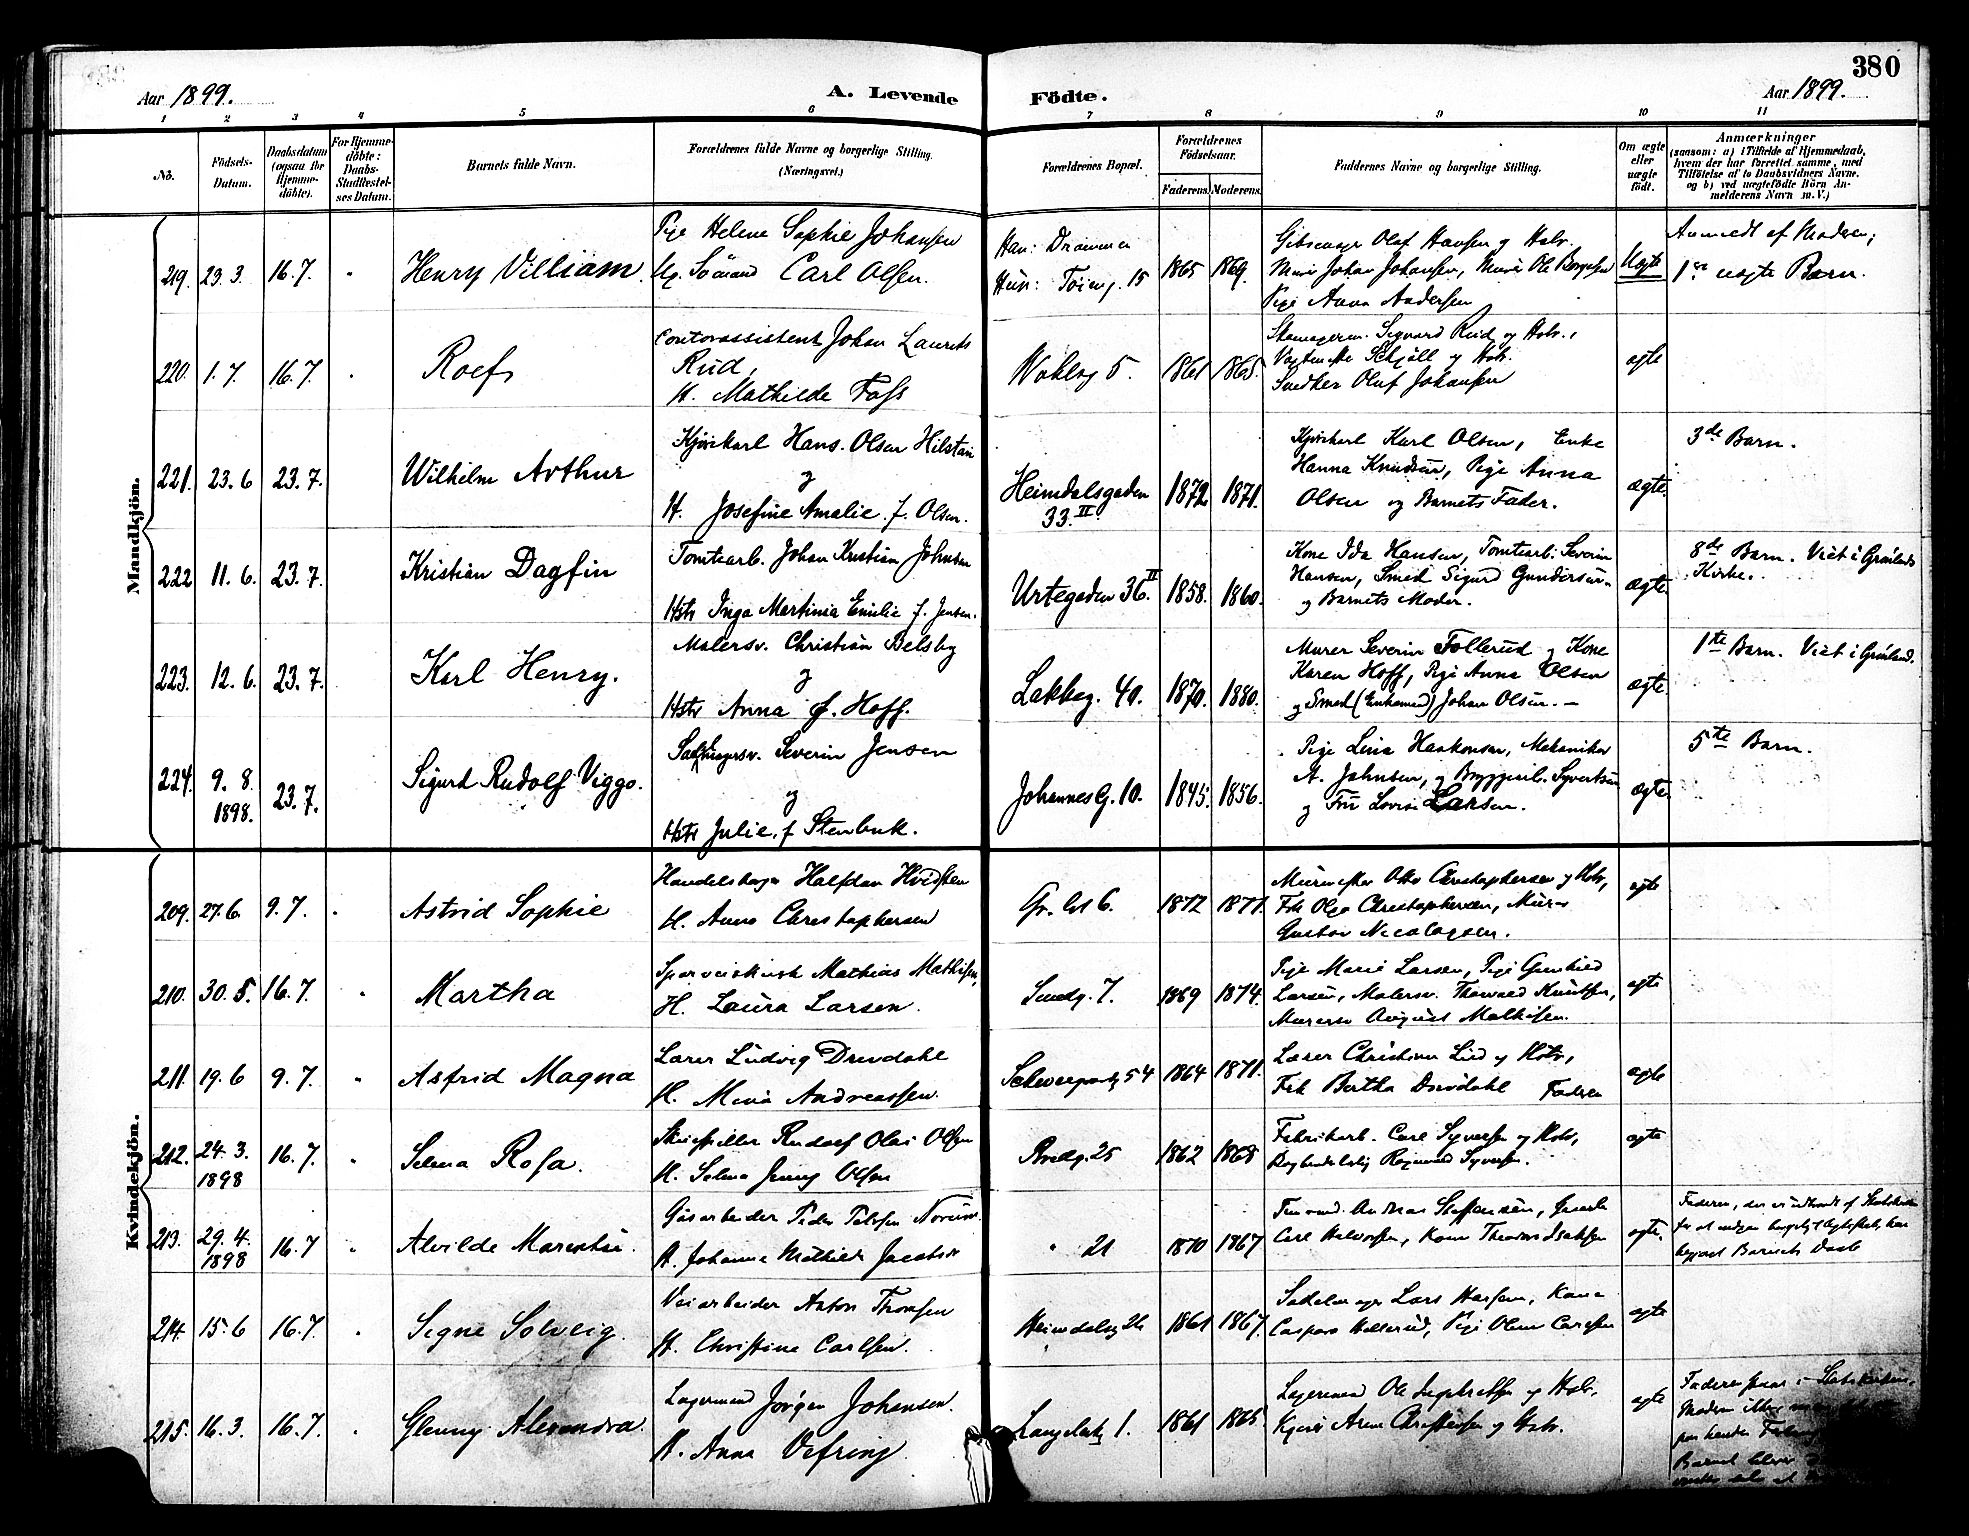 380
Aar 1899.
A. Levende
Födte.
Aar 1899.
1 2 3 4 5 6 7 8 9 10 11
No.
Födsels-
Datum.
Daabsdatum
(ogsaa for
Hjemme-
döbte).
For Hjemme-
döbte:
Daabs-
Stadfæstel-
ses Datum.
Barnets fulde Navn.
Forældrenes fulde Navne og borgerlige Stilling.
(Næringsvei.)
Forældrenes Bopæl.
Forældrenes
Födselsaar.
Faderens. Moderens.
Faddernes Navne og borgerlige Stilling.
Om ægte
eller
uægte
födt.
Anmærkninger
(saasom: a) i Tilfælde af Hjemmedaab,
hvem der har forrettet samme, med
Tilföielse af to Daabsvidners Navne.
og b) ved uægtefödte Börn An-
melderens Navn m.V.)
Mandkjön.
219. 23.3. 16.7. Henry Villiam.
Pige Helene Sophie Johansen
Ug. Sömand Carl Olsen.
Han: Drammen
Hun: Töieng. 15
1865 1869.
Olaf Hansen og Hstr.
Murer Johan Johansen, Murer Ole Borgersen
Pige Anna Andersen
Uægte
Anmeldt af Moderen;
1ste uægte Barn.
220. 1.7. 16.7. Rolf
Contorassistent Johan Laurits
Rud,
H. Mathilde Foss
5.
1861 1865.
Sigvard Rud og Hstr.,
og Hstr.
Snedker Oluf Johansen
ægte
221. 23.6 23.7. Wilhelm Arthur
Kjörekarl Hans Olsen
og
H. Josefine Amalie f. Olsen.
Heimdalsgaden
33.II
1872. 1871.
Kjörekarl Karl Olsen, Enke
Hanna Knudsen, Pige Anna
Olsen og Barnets Fader.
ægte.
3de Barn.
222 11.6. 23.7. Kristian Dagfin
Tomtearb. Johan Kristian Johnsen
Hstr Inga Martinia Emilie f. Jensen.
Urtegaden 36.II
1858. 1860.
Kone Ida Hansen, Tomtearb. Severin
Hansen, Smed Sigurd Gundersen
og Barnets Moder.
ægte.
8de Barn. Viet i Grönlands
Kirke.
223. 12.6. 23.7. Karl Henry.
Malersv. Christian Belsby
og
Hstr Anna f. Hoff.
Lakkeg. 40.
1870. 1880.
Murer Severin Follerud og Kone
Karen Hoff, Pige Anna Olsen
og Smed (Enkemand) Johan Olsen. –
ægte.
1ste Barn. Viet i Grönland.
224. 9.8. 1898. 23.7. Sigurd Rudolf Viggo.
Severin Jensen
og
Hstr Julie, f. Stenbuk.
Johannes G. 10.
1845. 1856.
Pige Lina Haakonsen, Mekaniker
A. Johnsen, og Bryggeriarb. Syvertsen
og Fru Lovise Larsen.
ægte.
5te Barn.
Kvindekjön.
209. 27.6. 9.7. Astrid Sophie
Halfdan Hvidsten
H. Anna Christophersen
6.
1872 1871.
Murmester Otto Christophersen og Hstr,
Frk Olga Christophersen, Murer
Gustav Nicolaysen.
ægte
210. 30.5. 16.7. Martha
Mathias Mathisen,
H. Laura Larsen.
Smedg. 7.
1869 1874.
Pige Marie Larsen, Pige Gunhild
Larsen, Malersv. Thorvald Knutsen,
Murersv August Mathisen.
ægte
211. 19.6 9.7. Astrid Magna
Lærer Ludvig Drevdahl
H. Mina Andreassen.
54
1864 1871.
Lærer Christian Lied og Hstr,
Frk Bertha Drevdahl Faderen
ægte
212. 24.3. 1898 16.7. Selma Rosa.
Rudolf Olai Olsen
H. Selma Jenny Olsen
Bredg. 25
1862 1868
Fabrikarb. Carl Syversen og Hstr,
Syversen.
ægte
213. 29.4. 1898 16.7 Alvilde
Gasarbeider Peder
H. Johanna Mathilde Jacobsen
" 21
1870 1867
Carl Halvorsen, Kone
ægte.
Faderen, der er udtraadt af Statskirken
Barnets Daab
214. 15.6 16.7. Signe Solveig.
Veiarbeider Anton Thomsen
H. Christine Carlsen.
Heimdalsg 26
1861 1867.
Sadelmager Lars Hansen, Kone
Pige Olava Carlsen
ægte
215. 16.3. 16.7. Glenny Alexandra.
Lagermand Jörgen Johansen.
H. Anna Vefring
1.
1861 1865.
Lagermand Ole og Hstr.
Arne Christensen og Hstr.
ægte
Faderen staar i Statskirken,
Moderen ikke
Barnet